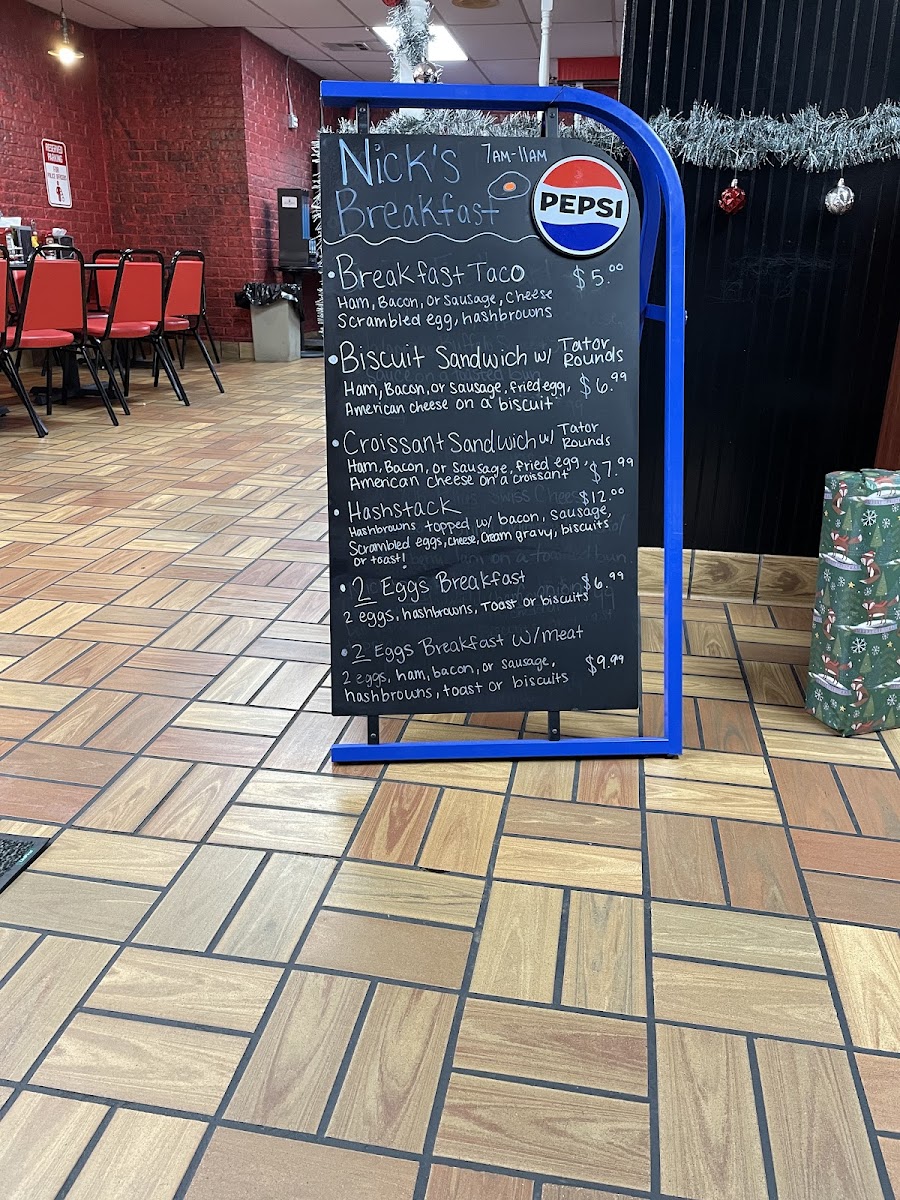 RESERVED
PARKING
Nick's 7AM-11AM
Breakfast
PEPSI
• Breakfast Taco $5.00
Ham, Bacon, or Sausage, Cheese
Scrambled egg, hashbrowns
• Biscuit Sandwich w/ Tator Rounds
Ham, Bacon, or sausage, fried egg, $6.99
American cheese on a biscuit
• Croissant Sandwich w/ Tator Rounds
Ham, Bacon, or sausage, fried egg, $7.99
American cheese on a croissant
• Hashstack $12.00
Hashbrowns topped w/ bacon, sausage,
Scrambled eggs, cheese, Cream gravy, biscuits
or toast!
• 2 Eggs Breakfast $6.99
2 eggs, hashbrowns, Toast or biscuits
• 2 Eggs Breakfast w/meat
2 eggs, ham, bacon, or sausage, $9.99
hashbrowns, toast or biscuits